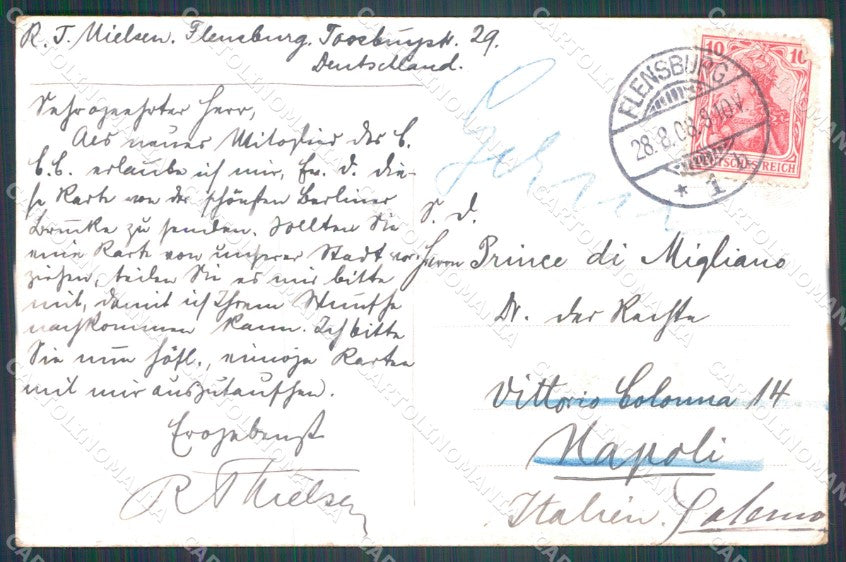 R. T. Nielsen. Flensburg. Toosbuystr. 29.
Deutschland.
Sehrgeehrter Herr,
Als neues Mitglied des C.
C. C. erlaube ich mir, Ew. D. die-
se Karte von der schönsten Berliner
Brücke zu senden. Sollten Sie
eine Karte von unserer Stadt vor-
ziehen, teilen Sie es mir bitte
mit, damit ich Ihrem Wunsche
nachkommen kann. Ich bitte
Sie nun höfl., einige Karten
mit mir auszutauschen.
Ergebenst
R T Nielsen
FLENSBURG
28.8.08.8-10V
* 1
10 10
DEUTSCHES REICH
S. D.
Herrn Prince di Migliano
Dr. der Rechte
Vittorio Colonna 14
Napoli
Italien. Salerno
CARTOLINOMANIA